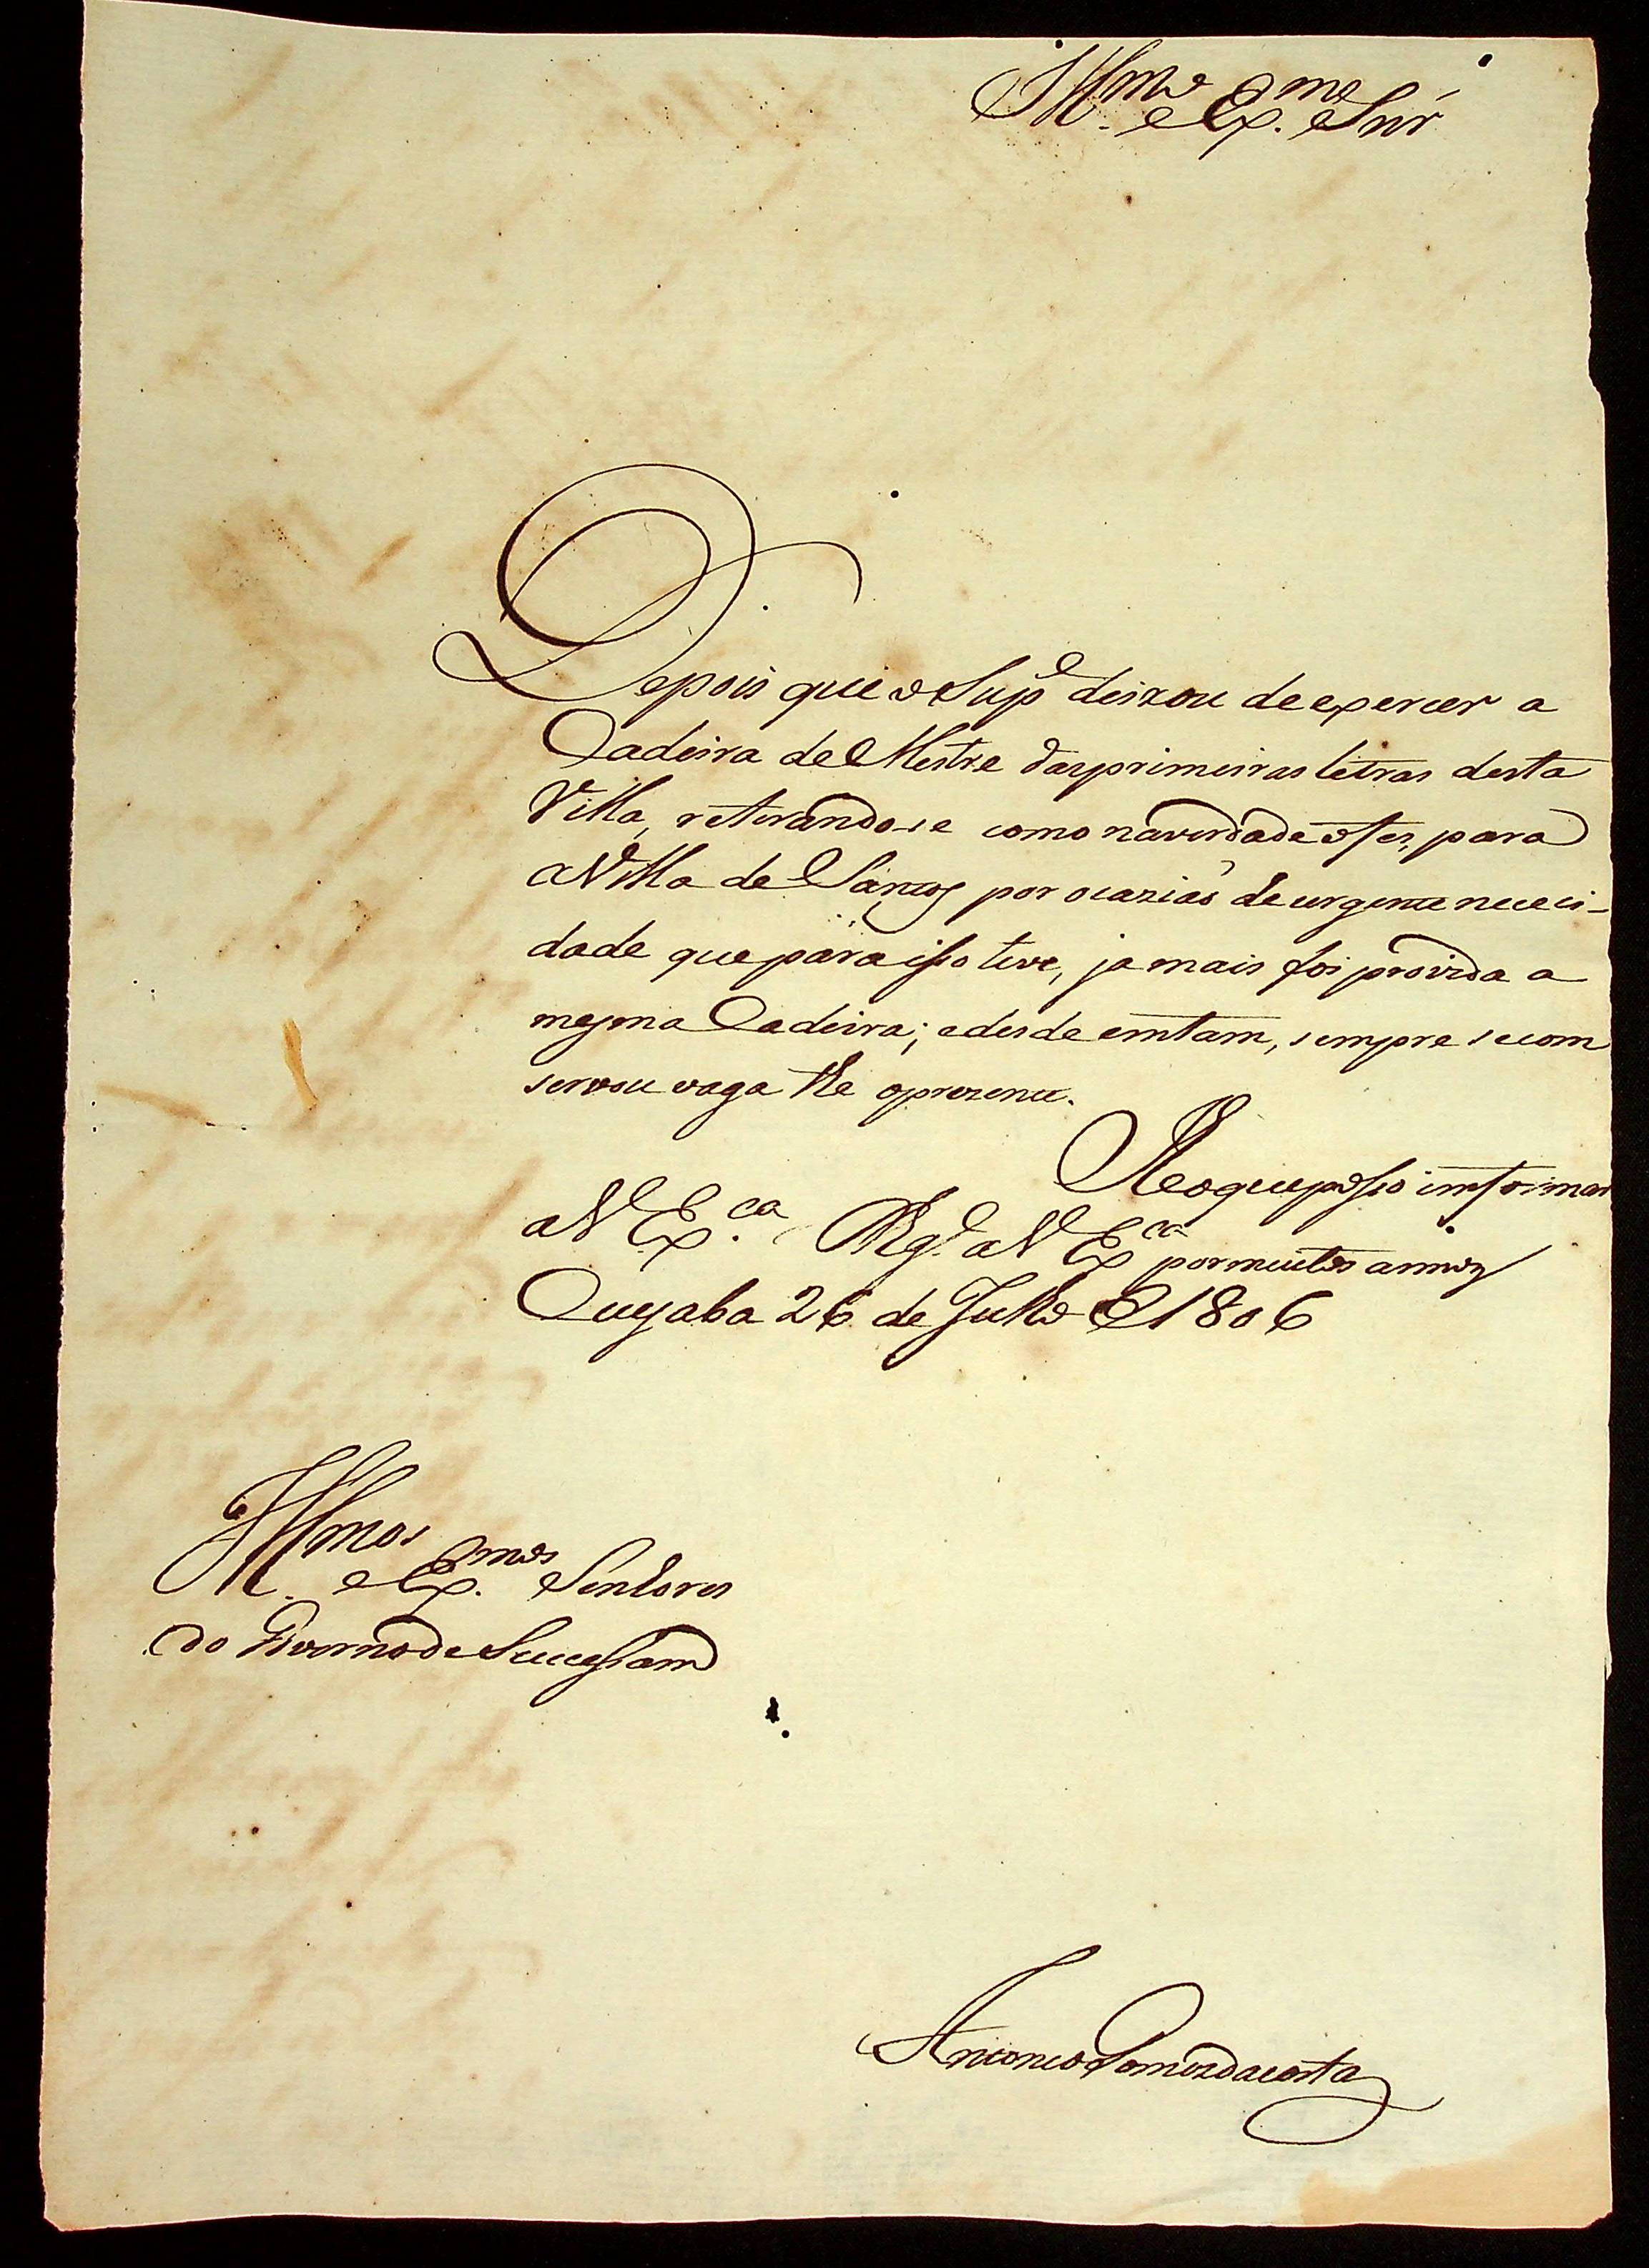 Illmo. e Exmo. Snr
Depois que o Supe deixou de expercer a
Cadeira de Mestre das primeiras letras desta
Villa, retirandose como na verdade o fes, para
a Villa de Santos por ocaziaõ de urgente nececi-
dade que para isso teve, ja mais foi provida a
mesma Cadeira; e desde emtam, sempre se com
servou vaga the oprezente.
He o que posso imformar
a V Exca. DsGe. a V Exca por muitos annos
Cuyaba 26 de Julho de 1806
Illmos. e Exmos. Senhores
do Governo de Sucessam
Antonio Gomes da Costa